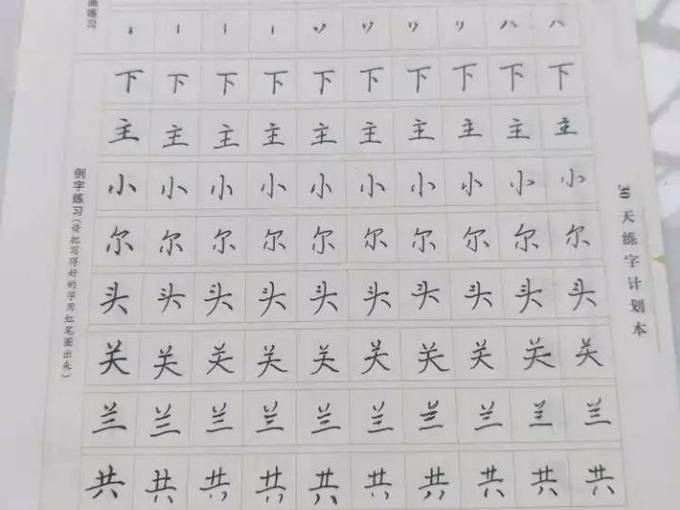 下下下下下下下下下下
主主主主主主主主主主
小小小小小小小小小小
尔尔尔尔尔尔尔尔尔尔
头头头头头头头头头头
关关关关关关关关关关
兰兰兰兰兰兰兰兰兰兰
共共共共共共共共共共
例字练习(请把写得好的字用红笔圈出来)
30天练字计划本